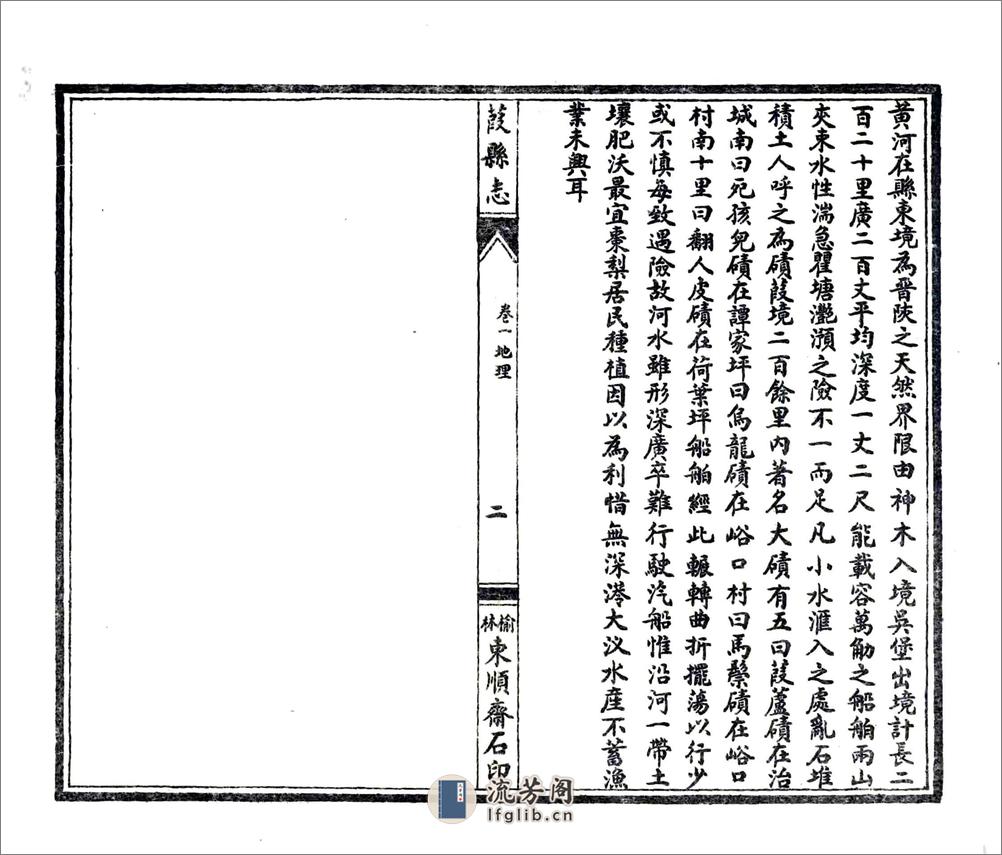 黃河在縣東境為晋陝之天然界限由神木入境吳堡出境計長二
百二十里廣二百丈平均深度一丈二尺能載容萬觔之船舶兩山
夾束水性湍急瞿塘灧澦之險不一而足凡小水滙入之處亂石堆
積土人呼之為磧葭境二百餘里內著名大磧有五曰葭蘆磧在治
城南曰死孩兒磧在譚家坪曰烏龍磧在峪口村曰馬鬃磧在峪口
村南十里曰翻人皮磧在荷葉坪船舶經此輾轉曲折擺蕩以行少
或不慎每致遇險故河水雖形深廣卒難行駛汽船惟沿河一帶土
壤肥沃最宜棗梨居民種植因以為利惜無深港大汊水産不蓄漁
業未興耳
葭縣志
卷一地理
二
榆林東順齋石印
流芳阁
lfglib.cn